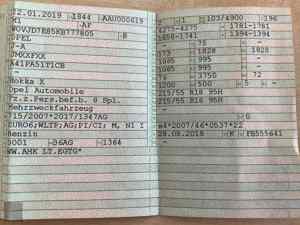 02.01.2019 1844 AAU000619
M1 AF
W0VJD7E85KB777805 -8
OPEL
J-A
JMXXFXX
A41PA51TICB
-
Mokka X
Opel Automobile
Fz.z.Pers.bef.b. 8 Spl.
Mehrzweckfahrzeug
715/2007*2017/1347AG
EURO6;WLTP;AG;PI/CI; M, N1 I
Benzin
0001 36AG 1364
WW.AHK LT.EGTG*
1 103/4900 196
4275-4275 -1781-1781
1658-1741 -1394-1394
75
1828 1828
1085 995
1085 995
3750 72
1200 500 5 -
215/55 R18 95H
215/55 R18 95H
-
G
e4*2007/46*0537*22
28.09.2018 K FB555641